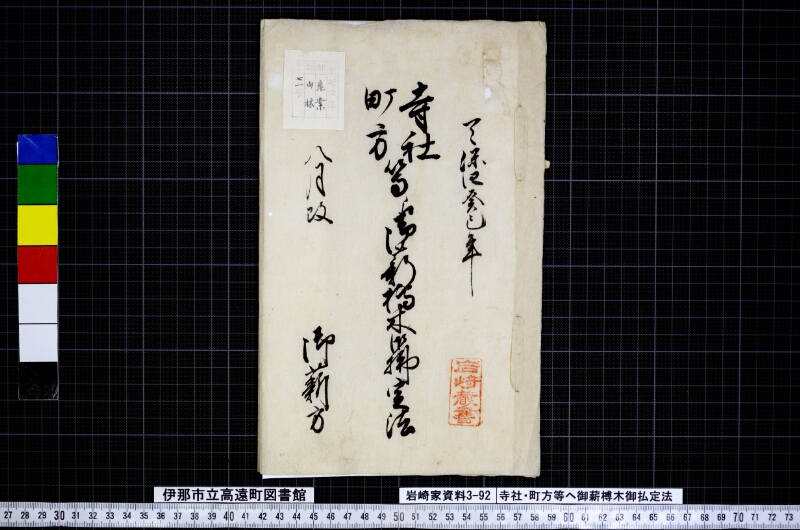 天保四癸巳年
寺社
町方
等へ御薪榑木御払定法
八月改
御薪方
岩崎蔵書
産業
山林
伊那市立高遠町図書館
岩崎家資料3-92
寺社・町方等へ御薪榑木御払定法
27 28 29 30 31 32 33 34 35 36 37 38 39 40 41 42 43 44 45 46 47 48 49 50 51 52 53 54 55 56 57 58 59 60 61 62 63 64 65 66 67 68 69 70 71 72 73